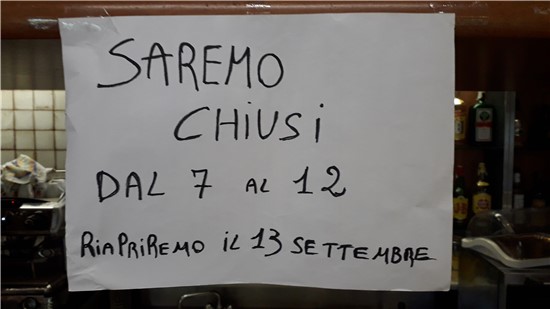 SAREMO
CHiUSi
DAL 7 AL 12
RiAPRiREMO iL 13 SETTEMBRE